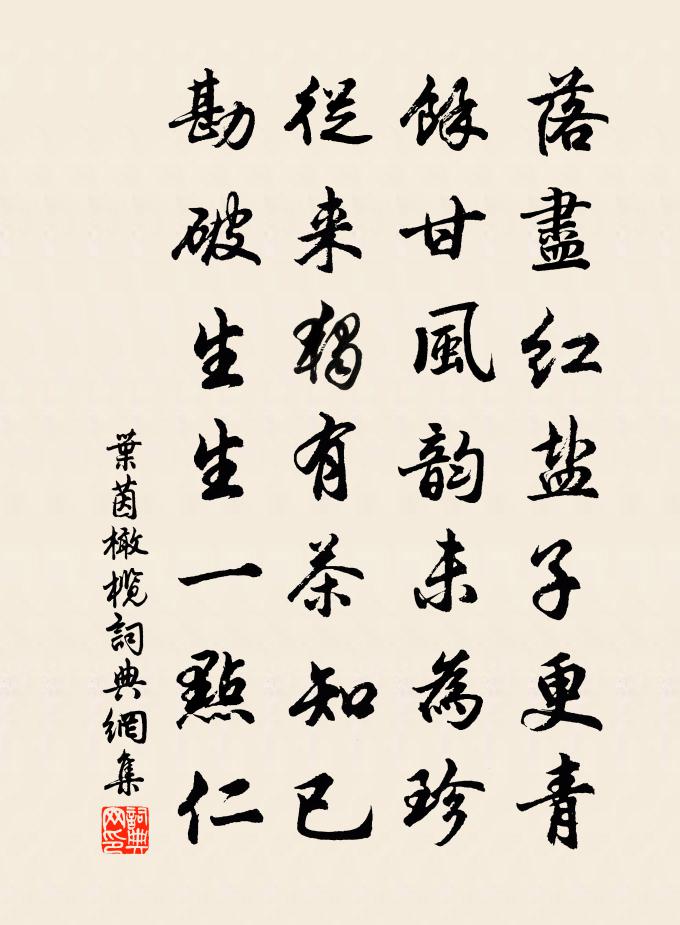 落盡红盐子更青
餘甘風韵未為珍
從来獨有茶知已
勘破生生一點仁
葉茵橄欖詞典網集
詞典网印